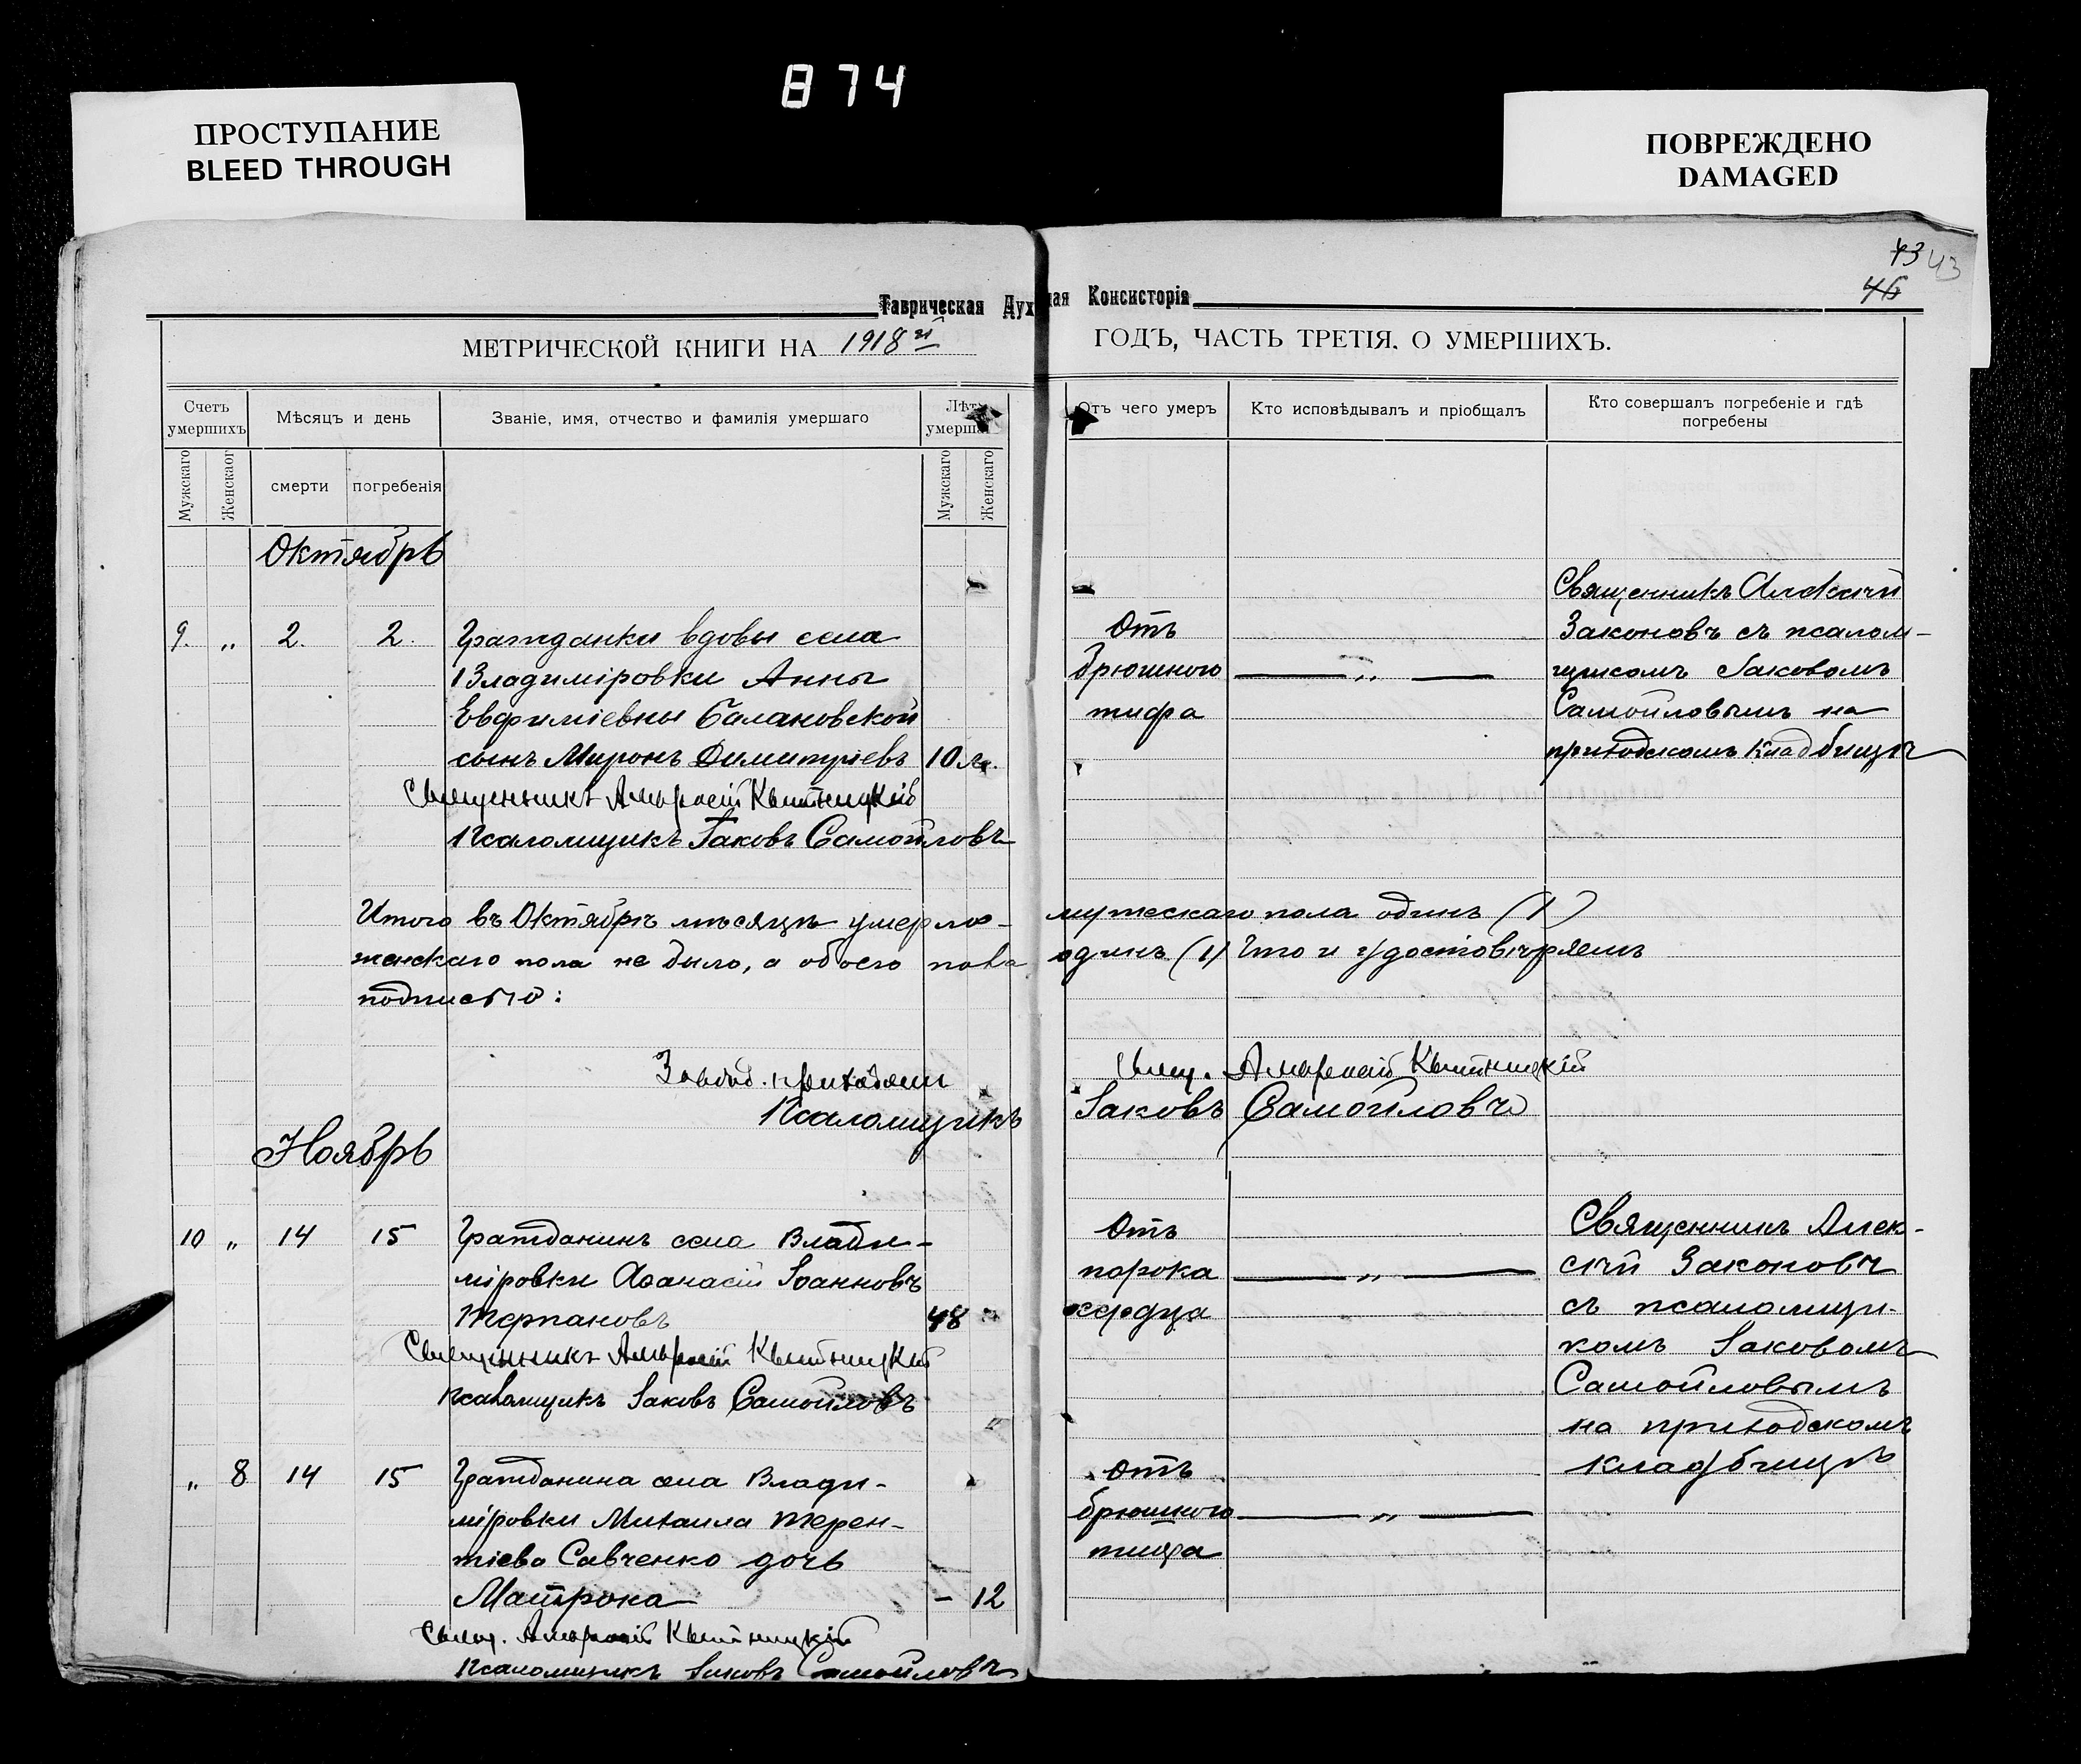 874
ПРОСТУПАНИЕ
BLEED THROUGH
ПОВРЕЖДЕНО
DAMAGED
43 43
46
Таврическая Духовная Консисторія
МЕТРИЧЕСКОЙ КНИГИ НА 1918 й ГОДЪ, ЧАСТЬ ТРЕТІЯ. О УМЕРШИХЪ.
Счетъ умершихъ
Мѣсяцъ и день
Званіе, имя, отчество и фамилія умершаго
Лѣта умерша
Отъ чего умеръ
Кто исповѣдывалъ и пріобщалъ
Кто совершалъ погребеніе и гдѣ погребены
Мужскаго
Женскаог
смерти
погребенія
Мужскаго
Женскаго
Октябрь
9. „ 2. 2.
Гражданки вдовы села
Владиміровки Анны
Евфиміевны Балановской
сынъ Миронъ Димитріевъ 10 л.
Священникъ Амвросій
Псаломщикъ Іаковъ Самойловъ
Отъ
брюшного
тифа
— „ —
Священникъ Алексій
Законовъ съ псалом-
щикомъ Іаковомъ
Самойловымъ на
приходскомъ кладбищѣ
Итого въ Октябрѣ мѣсяцѣ умерло- мужескаго пола одинъ (1)
женскаго пола не было, а обоего пола одинъ (1) Что и удостовѣряемъ
подписью:
Завѣд. приходомъ Свящ. Амвросій
Псаломщикъ Іаковъ Самойловъ
Ноябрь
10 „ 14 15
Гражданинъ села Влади-
міровки Аѳанасій Іоанновъ
Терпановъ 48
Священникъ Амвросій
псаломщикъ Іаковъ Самойловъ
Отъ
порока
сердца
— „ —
Священникъ Алек-
сѣй Законовъ
съ псаломщи-
комъ Іаковомъ
Самойловымъ
на приходскомъ
кладбищѣ
„ 8 14 15
Гражданина села Влади-
міровки Михаила Терен-
тіева Савченко дочь
Матрона - 12
Свящ. Амвросій
Псаломщикъ Іаковъ Самойловъ
Отъ
брюшного
тифа
— „ —